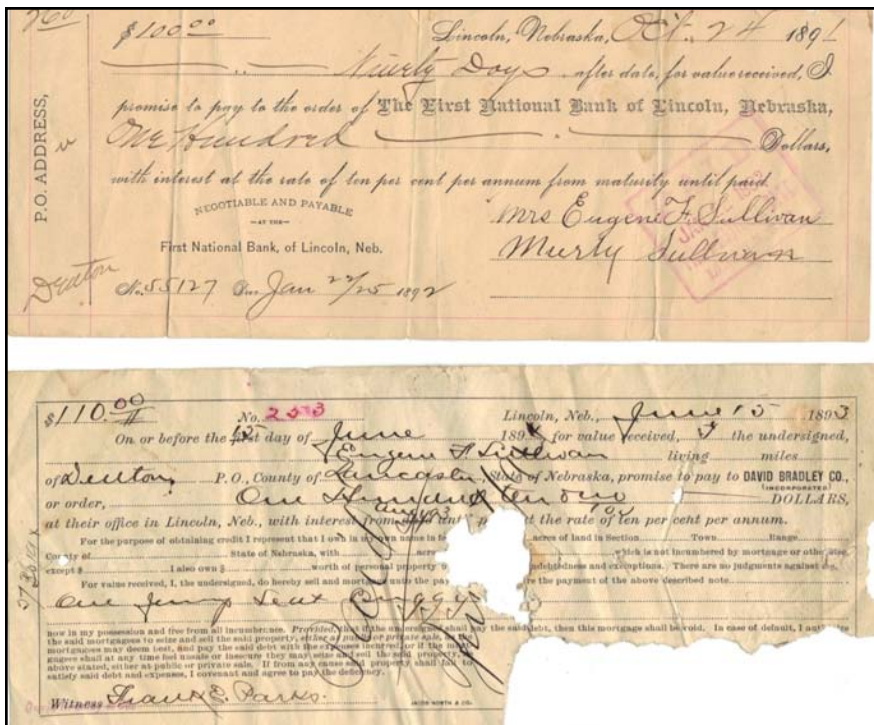 $100.00 Lincoln, Nebraska, Oct. 24 1891
Ninety Days after date, for value received, I
promise to pay to the order of The First National Bank of Lincoln, Nebraska,
One Hundred Dollars,
with interest at the rate of ten per cent per annum from maturity until paid.
P.O. ADDRESS,
Denton
NEGOTIABLE AND PAYABLE
—AT THE—
First National Bank, of Lincoln, Neb.
No. 55127 Due Jan 22/25 1892
Mrs Eugene F. Sullivan
Murty Sullivan
$110.00 No. 253 Lincoln, Neb., June 15 1893
On or before the day of June 189 for value received, I the undersigned,
Eugene F. Sullivan living miles
of Denton P.O., County of Lancaster, State of Nebraska, promise to pay to DAVID BRADLEY CO.,
(INCORPORATED)
or order, One Hundred ten DOLLARS,
at their office in Lincoln, Neb., with interest from date until at the rate of ten per cent per annum.
For the purpose of obtaining credit I represent that I own in my own name in acres of land in Section Town Range
County of State of Nebraska, with acres which is not incumbered by mortgage or otherwise
except $ I also own $ worth of personal property indebtedness and exceptions. There are no judgments against me.
For value received, I, the undersigned, do hereby sell and mortgage unto the the payment of the above described note
One Jump Seat Buggy
now in my possession and free from all incumbrance. Provided, that if the undersigned shall pay the said debt, then this mortgage shall be void. In case of default, I authorize
the said mortgagees to seize and sell the said property, either at public or private sale, as the
mortgagees may deem best, and pay the said debt with the expenses incurred, or if the mort-
gagees shall at any time feel unsafe or insecure they may seize and sell the said property, as
above stated, either at public or private sale. If from any cause said property shall fail to
satisfy said debt and expenses, I covenant and agree to pay the deficiency.
Witness Frank E. Parks. JACOB NORTH & CO.